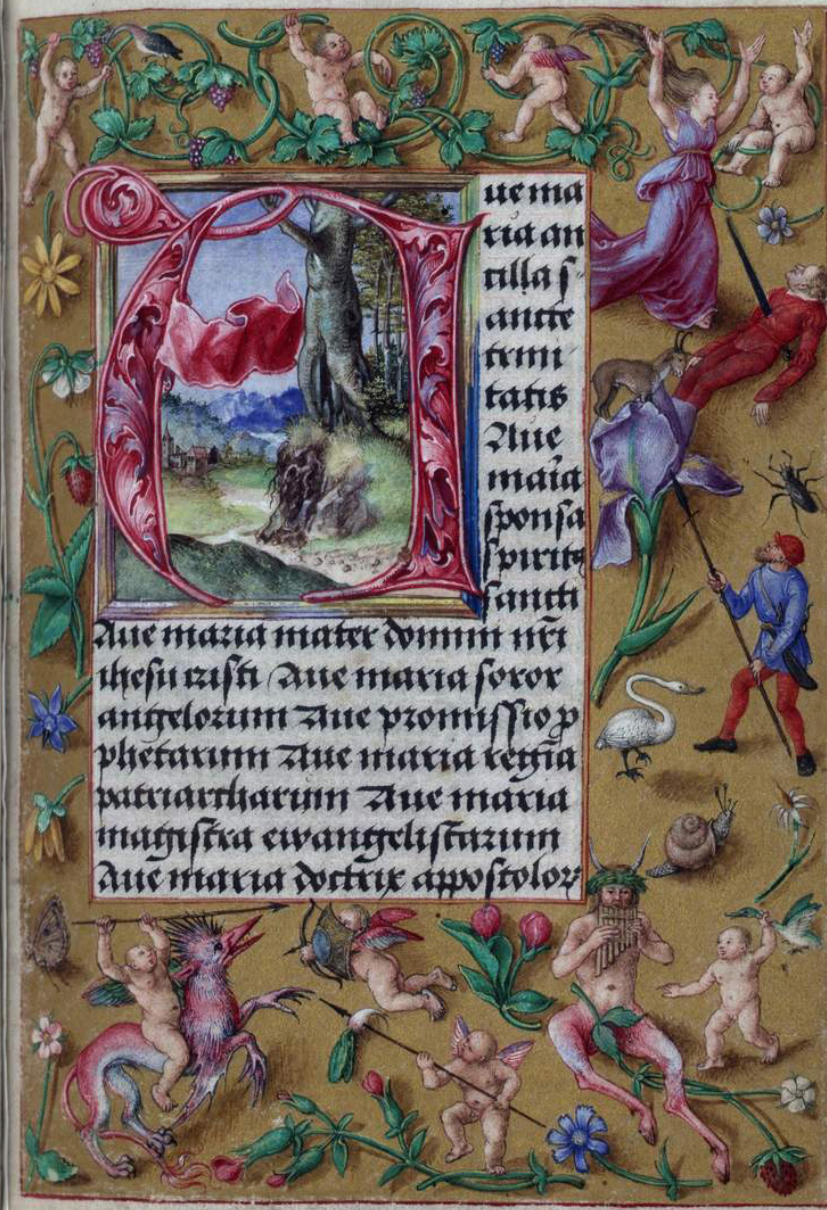 Aue ma
ria an
cilla s
ancte
trini
tatis
Aue
maria
sponsa
spirits
sancti
Aue maria mater domini nri
ihesu cristi Aue maria soror
angelorum Aue promissio p
phetarum Aue maria regina
patriarcharum Aue maria
magistra ewangelistarum
Aue maria doctrix appostolor